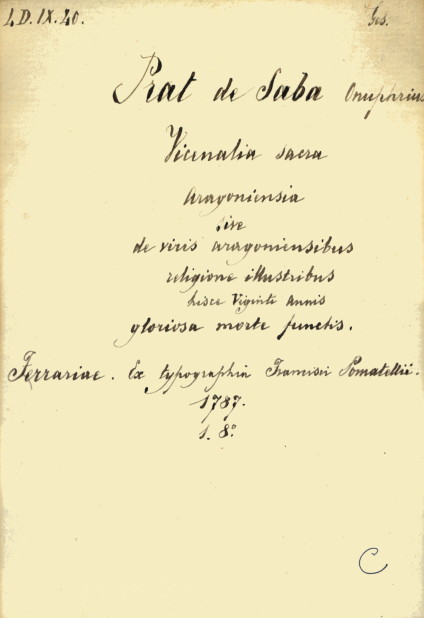 I.D.IX.40.
Ges.
Prat de Saba Onuphrius
Vicenalia sacra
Aragoniensia
sive
de viris aragoniensibus
religione illustribus
hisce Viginti Annis
gloriosa morte functis.
Ferrariae. Ex typographia Francisci Pomatellii.
1787.
1. 8°
C